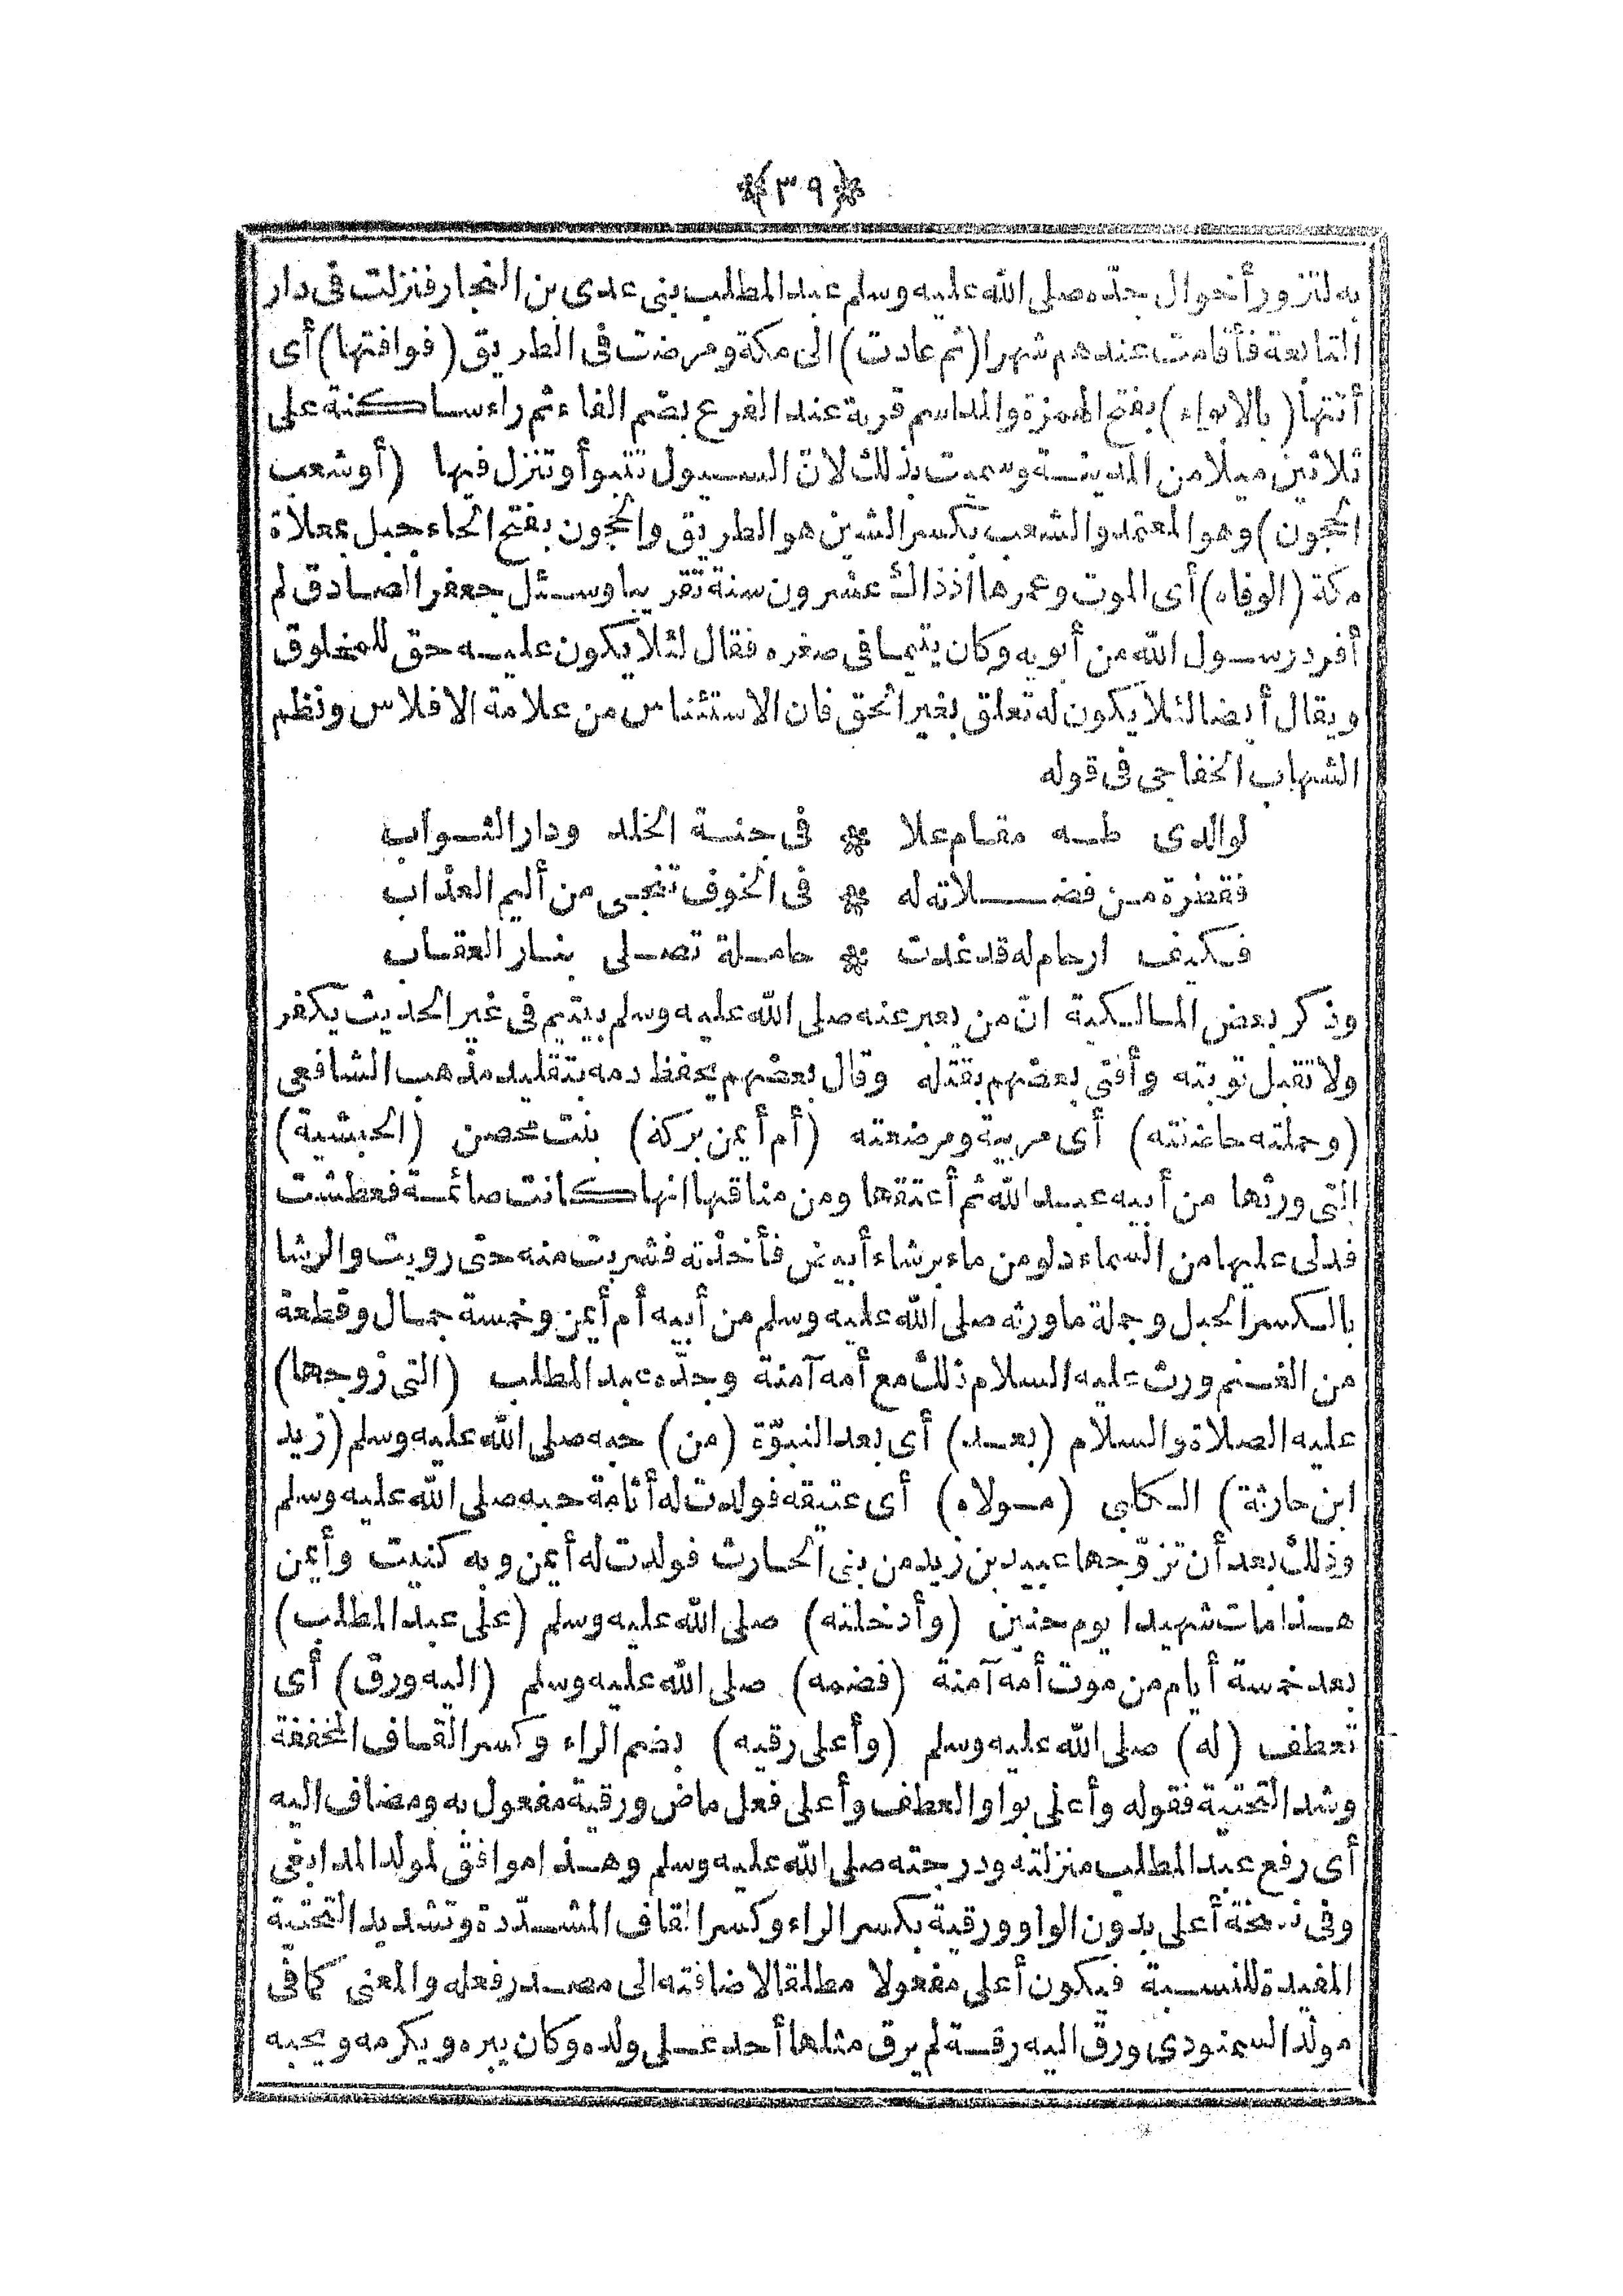 (٣٩)
به لتزور أخوال جدّه صلى الله عليه وسلم عبد المطلب بنى عدى بن النجار فنزلت فى دار
التابعة فأقامت عندهم شهرا (ثم عادت) الى مكة ومرضت فى الطريق (فوافتها) أى
أتتها (بالابواء) بفتح الهمزة والمد اسم قرية عند الفرع بضم الفاء ثم راء ساكنة على
ثلاثين ميلا من المدينة وسميت بذلك لانّ السيول تتبوأ وتنزل فيها (أو شعب
الحجون) وهو المعتمد والشعب بكسر الشين هو الطريق والحجون بفتح الحاء جبل بمعلاة
مكة (الوفاه) أى الموت وعمرها اذ ذاك عشرون سنة تقريبا وسئل جعفر الصادق لم
أفرد رسول الله من أبويه وكان يتيما فى صغره فقال لئلا يكون عليه حق للمخلوق
ويقال أيضا لئلا يكون له تعلق بغير الحق فان الاستئناس من علامة الافلاس ونظم
الشهاب الخفاجى فى قوله
لوالدى طه مقام علا * فى جنة الخلد ودار الثواب
فقطرة من فضلاته له * فى الخوف تنجى من أليم العذاب
فكيف ارحام له قد غدت * حاملة تصلى بنار العقاب
وذكر بعض المالكية انّ من يعبر عنه صلى الله عليه وسلم بيتيم فى غير الحديث يكفر
ولا تقبل توبته وأفتى بعضهم بقتله وقال بعضهم يحفظ دمه بتقليد مذهب الشافعى
(وحملته حاضنته) أى مربية ومرضعته (أم أيمن بركة) بنت محصن (الحبشية)
التى ورثها من أبيه عبد الله ثم أعتقها ومن مناقبها انها كانت صائمة فعطشت
فدلى عليها من السماء دلو من ماء برشاء أبيض فأخذته فشربت منه حتى رويت والرشا
بالكسر الحبل وجملة ما ورثه صلى الله عليه وسلم من أبيه أم أيمن وخمسة جمال وقطعة
من الغنم ورث عليه السلام ذلك مع أمه آمنة وجدّه عبد المطلب (التى زوجها)
عليه الصلاة والسلام (بعد) أى بعد النبوّة (من) حبه صلى الله عليه وسلم (زيد
ابن حارثة) الكلبى (مولاه) أى عتيقه فولدت له أسامة حبه صلى الله عليه وسلم
وذلك بعد أن تزوّجها عبيد بن زيد من بنى الحارث فولدت له أيمن وبه كنيت وأيمن
هذا مات شهيدا يوم حنين (وأدخلته) صلى الله عليه وسلم (على عبد المطلب)
بعد خمسة أيام من موت أمه آمنة (فضمه) صلى الله عليه وسلم (اليه ورق) أى
تعطف (له) صلى الله عليه وسلم (وأعلى رقيه) بضم الراء وكسر القاف المخففة
وشد التحتية فقوله وأعلى بواو العطف وأعلى فعل ماض ورقية مفعول به ومضاف اليه
أى رفع عبد المطلب منزلته ودرجته صلى الله عليه وسلم وهذا موافق لمولد المدابغى
وفى نسخة أعلى بدون الواو ورقية بكسر الراء وكسر القاف المشدّدة وتشديد التحتية
المفيدة للنسبة فيكون أعلى مفعولا مطلقا لاضافته الى مصدر فعله والمعنى كما فى
مولد السمنودى ورقّ اليه رقة لم يرق مثلها أحد على ولده وكان يبره ويكرمه ويحبه